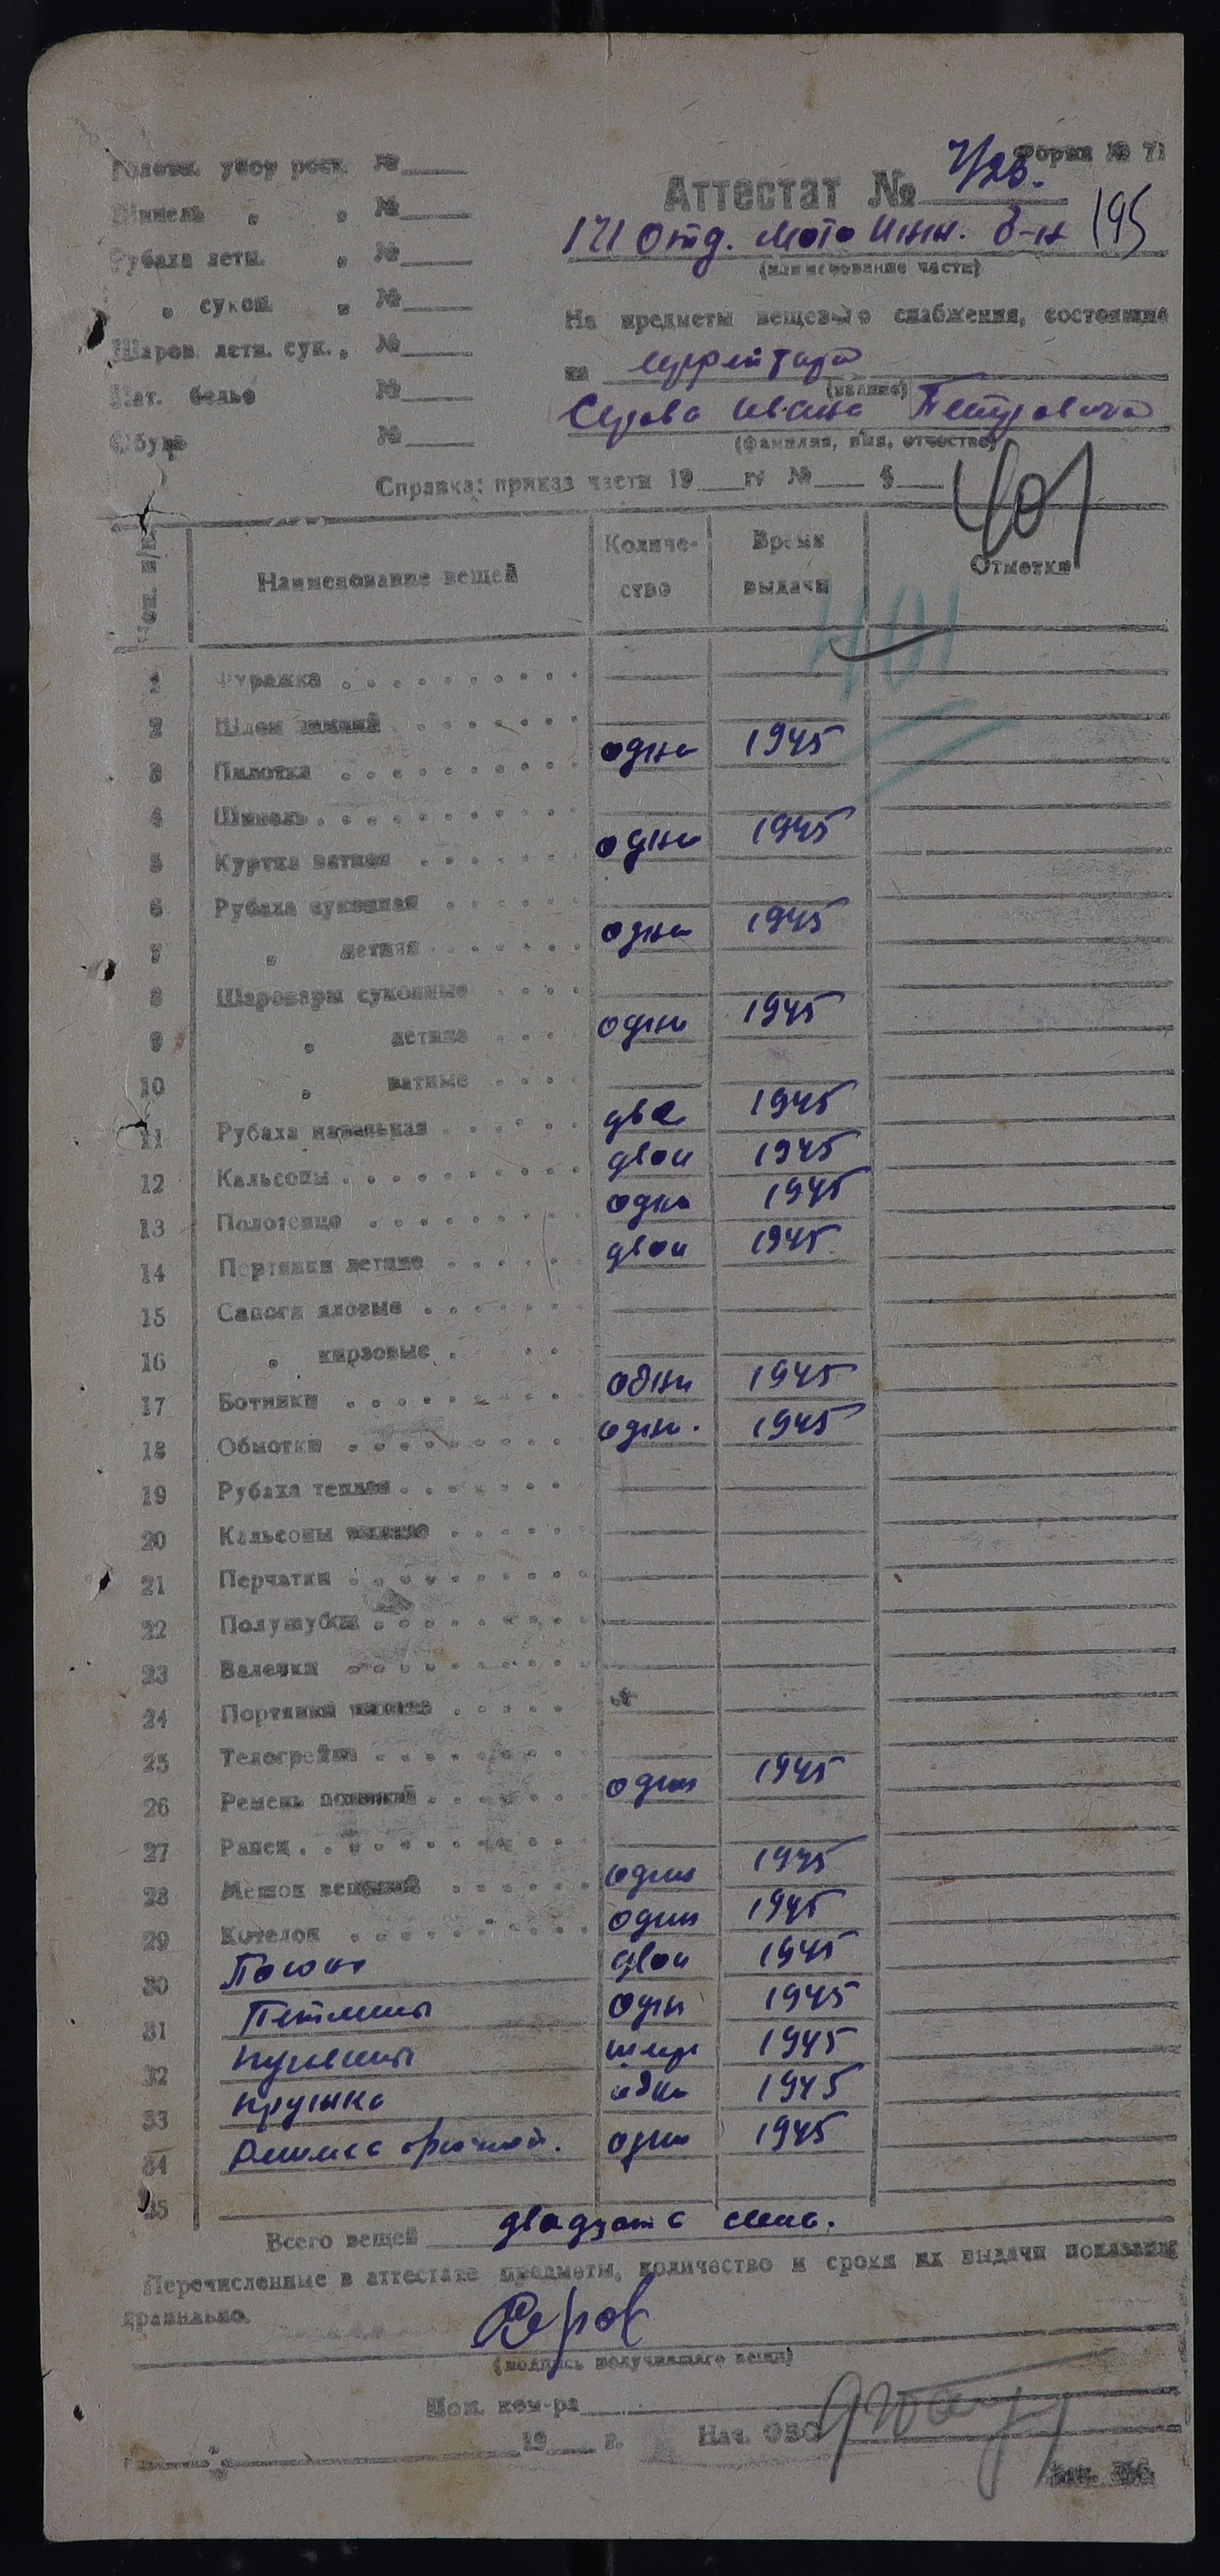 Форма № 71
Головн. убор рост. №
Шинель " " №
Рубаха летн. " №
" сукон. " №
Шаров. летн. сук. " №
Нат. белье №
Обувь №
Аттестат № 7/25.
171 Отд. Мото Инж. б-н 195
(наименование части)
На предметы вещевого снабжения, состоящие
на ефрейтора
(звание)
Серова Ивана Петровича
(фамилия, имя, отчество)
401
Справка: приказ части 19 г. № §
Ном. п/п Наименование вещей Количество Время выдачи Отметки
401
1 Фуражка
2 Шлем зимний
3 Пилотка одна 1945
4 Шинель
5 Куртка ватная одна 1945
6 Рубаха суконная
7 " летняя одна 1945
8 Шаровары суконные
9 " летние одни 1945
10 " ватные
11 Рубаха нательная две 1945
12 Кальсоны двои 1945
13 Полотенце одно 1945
14 Портянки летние двои 1945
15 Сапоги яловые
16 " кирзовые
17 Ботинки одни 1945
18 Обмотки одни. 1945
19 Рубаха теплая
20 Кальсоны теплые
21 Перчатки
22 Полушубок
23 Валенки
24 Портянки зимние
25 Телогрейка
26 Ремень поясной один 1945
27 Ранец
28 Мешок вещевой один 1945
29 Котелок один 1945
30 Погоны двои 1945
31 Петлицы одни 1945
32 Пуговицы 1945
33 Кружка одна 1945
34 один 1945
35
Всего вещей двадцать семь.
Перечисленные в аттестате предметы, количество и сроки их выдачи показаны
правильно.
Серов
(подпись получившего вещи)
Пом. ком-ра
19 г. Нач. ОВС